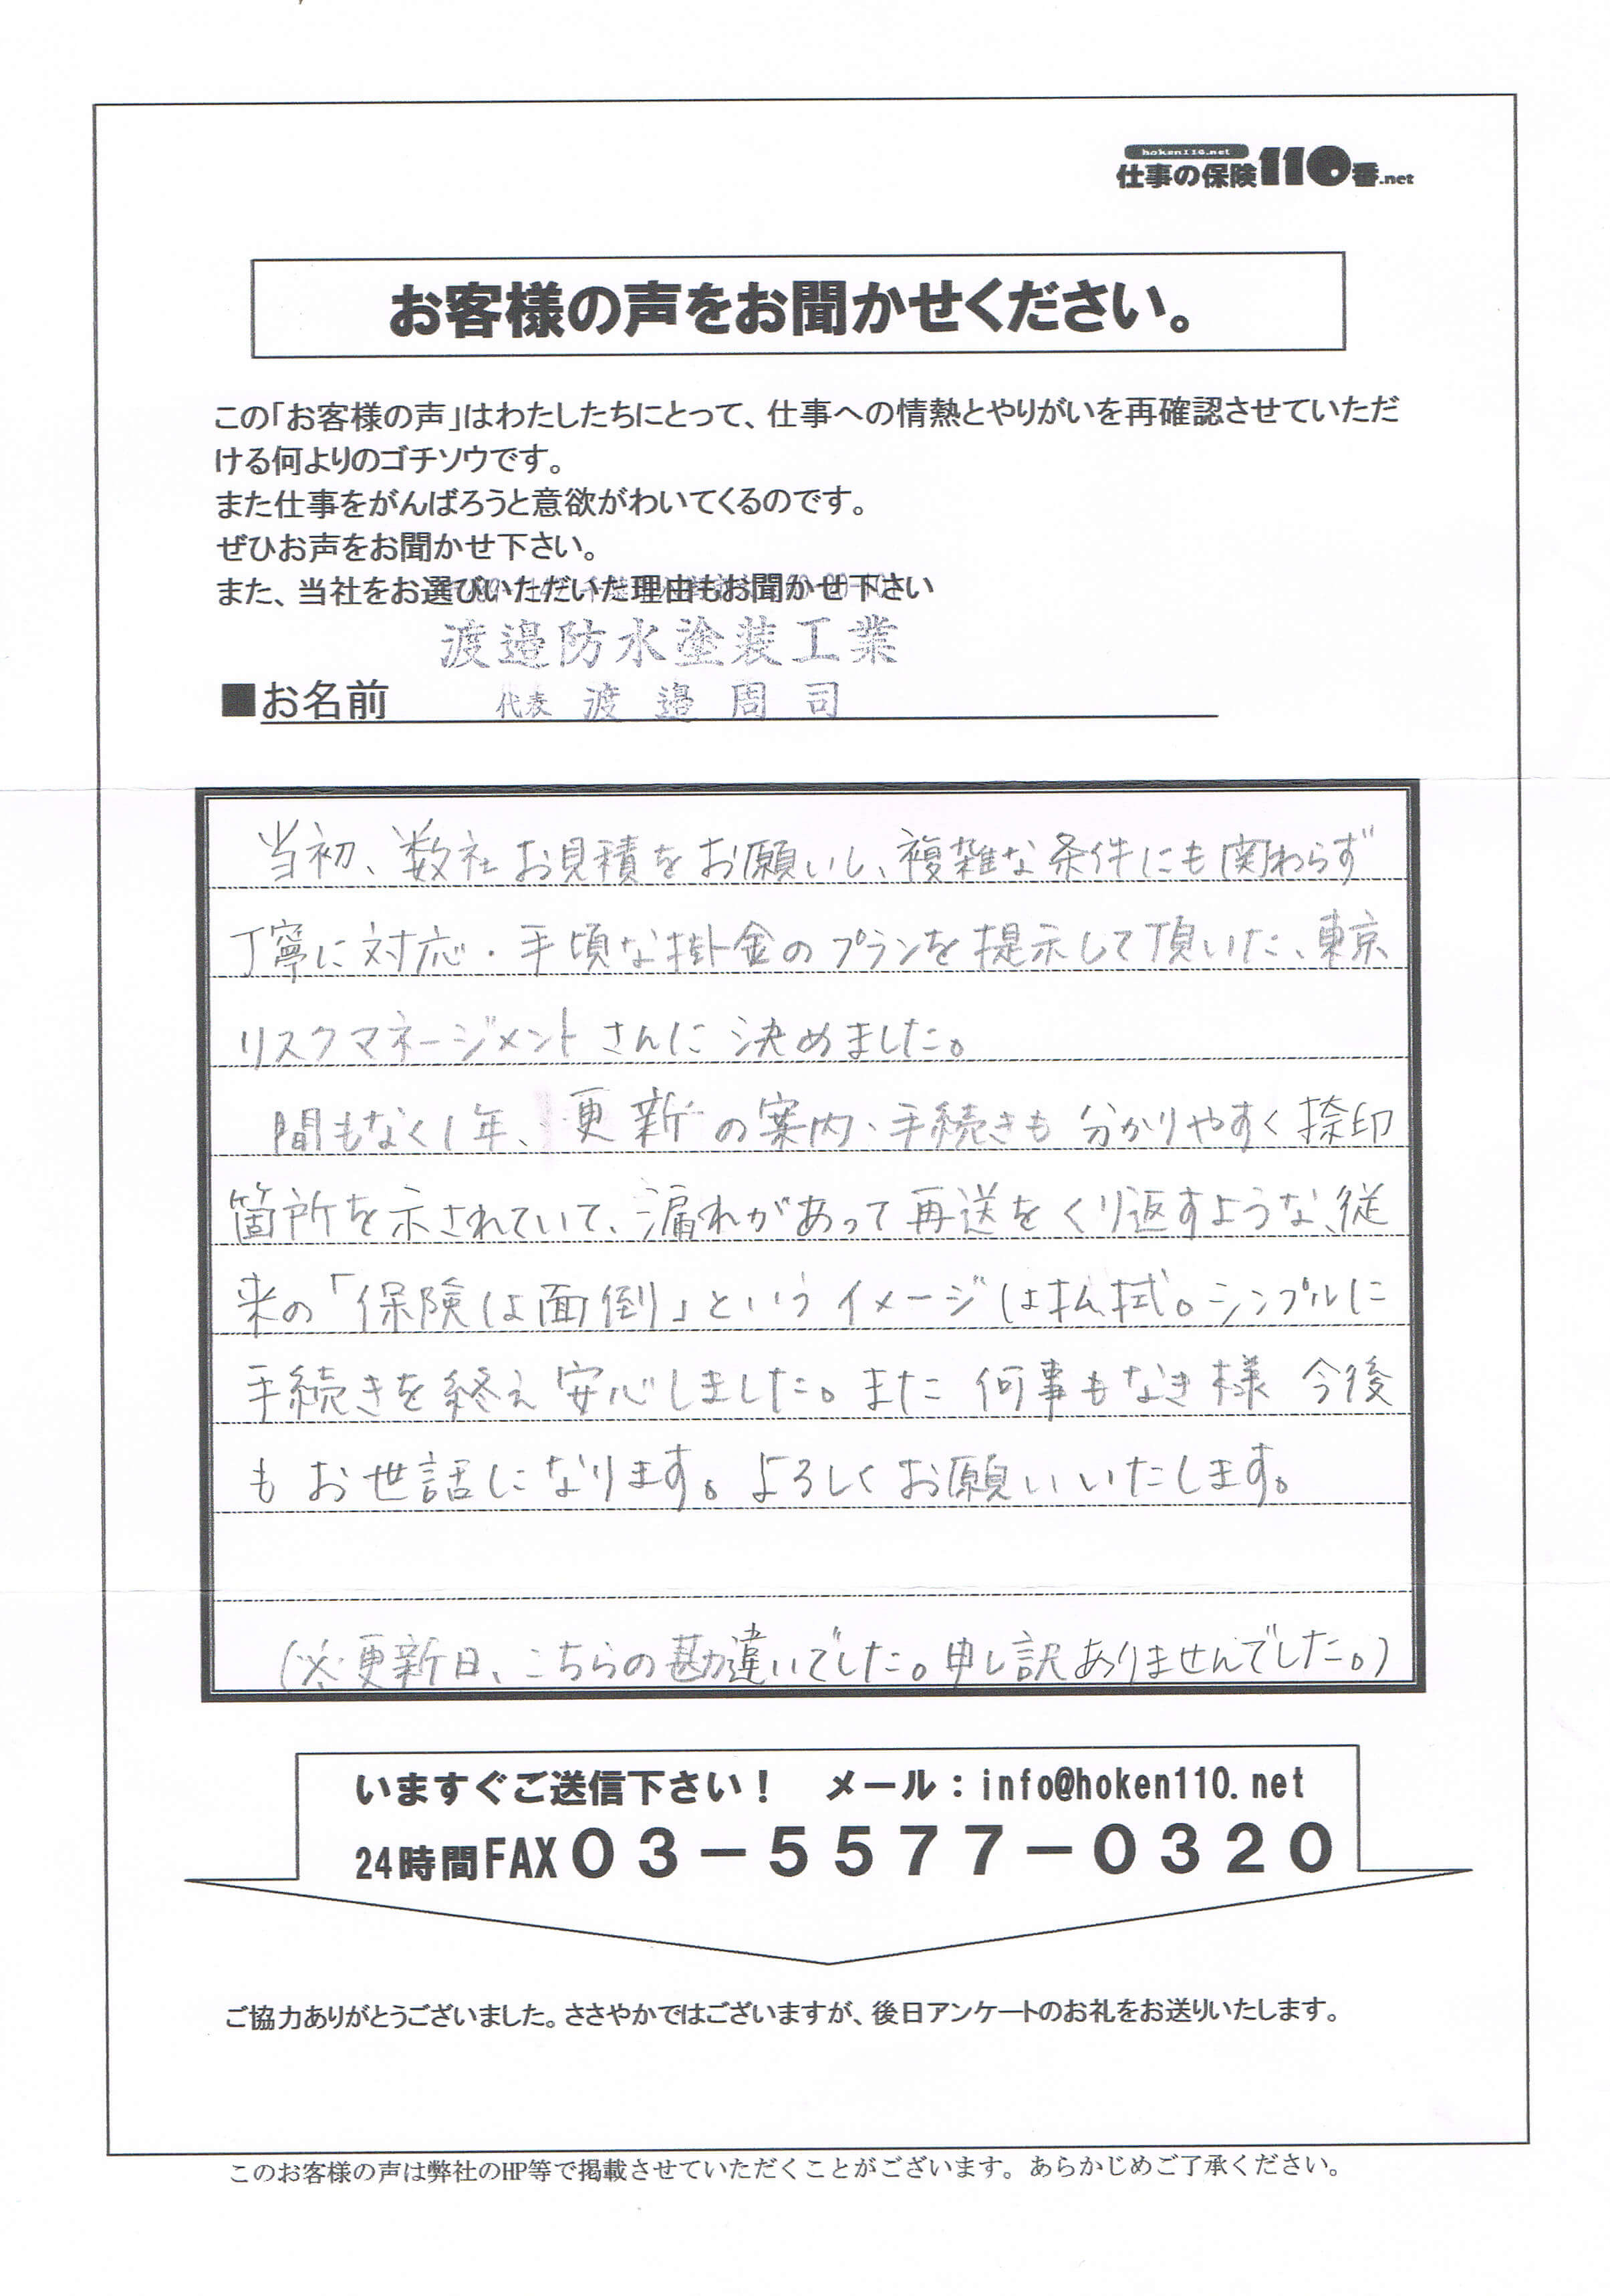 hoken110.net
仕事の保険110番.net
お客様の声をお聞かせください。
この「お客様の声」はわたしたちにとって、仕事への情熱とやりがいを再確認させていただ
ける何よりのゴチソウです。
また仕事をがんばろうと意欲がわいてくるのです。
ぜひお声をお聞かせ下さい。
また、当社をお選びいただいた理由もお聞かせ下さい
渡邉防水塗装工業
■お名前 代表 渡邉周司
当初、数社お見積をお願いし、複雑な条件にも関わらず
丁寧に対応・手頃な掛金のプランを提示して頂いた、東京
リスクマネージメントさんに決めました。
間もなく1年、更新の案内・手続きも分かりやすく捺印
箇所を示されていて、漏れがあって再送をくり返すような、従
来の「保険は面倒」というイメージは払拭。シンプルに
手続きを終え安心しました。また何事もなき様 今後
もお世話になります。よろしくお願いいたします。
(※更新日、こちらの勘違いでした。申し訳ありませんでした。)
いますぐご送信下さい！ メール：info@hoken110.net
24時間FAX03－5577－0320
ご協力ありがとうございました。ささやかではございますが、後日アンケートのお礼をお送りいたします。
このお客様の声は弊社のHP等で掲載させていただくことがございます。あらかじめご了承ください。